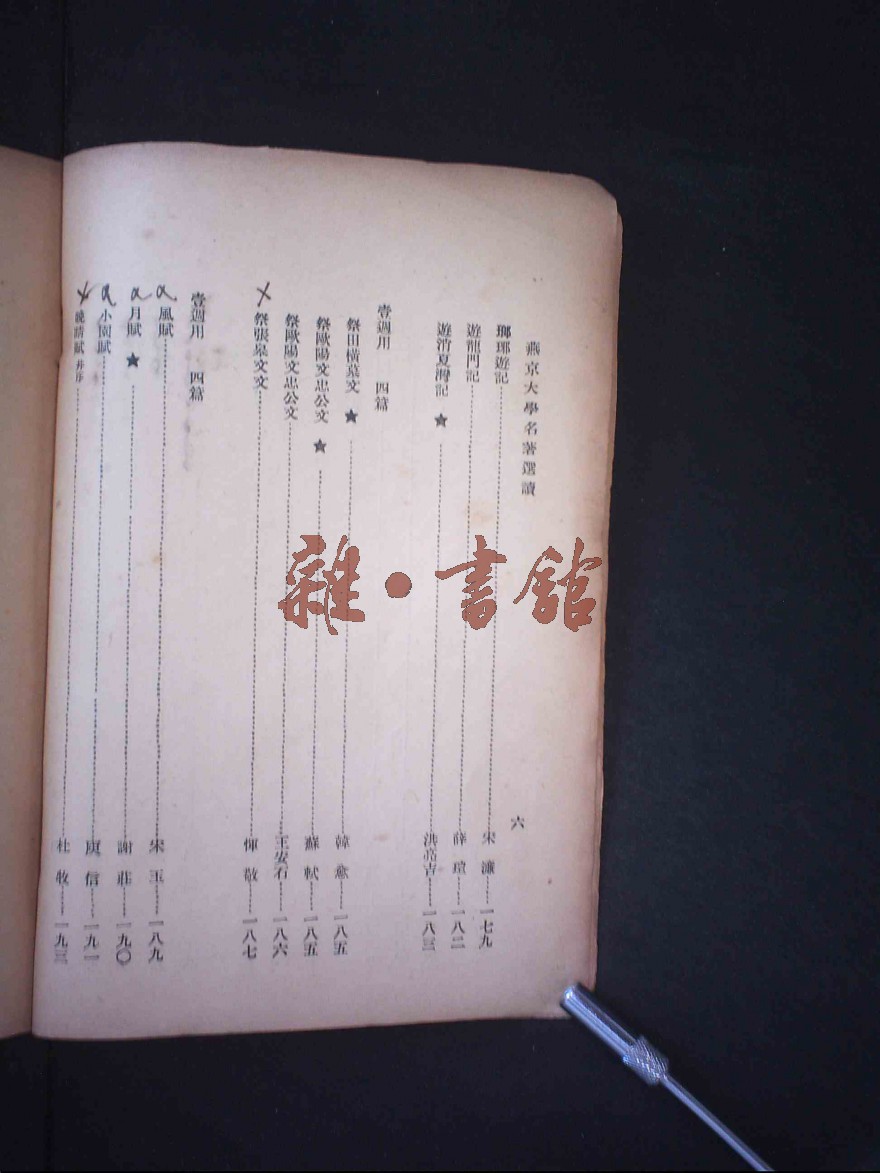 燕京大學名著選讀
六
瑯琊遊記 宋濂 一七九
遊龍門記 薛瑄 一八二
遊消夏灣記★ 洪亮吉 一八三
壹週用 四篇
祭田橫墓文★ 韓愈 一八五
祭歐陽文忠公文★ 蘇軾 一八五
祭歐陽文忠公文 王安石 一八六
祭張皋文文 惲敬 一八七
壹週用 四篇
風賦 宋玉 一八九
月賦★ 謝莊 一九〇
小園賦 庾信 一九一
晚晴賦 并序 杜牧 一九三
雜·書館